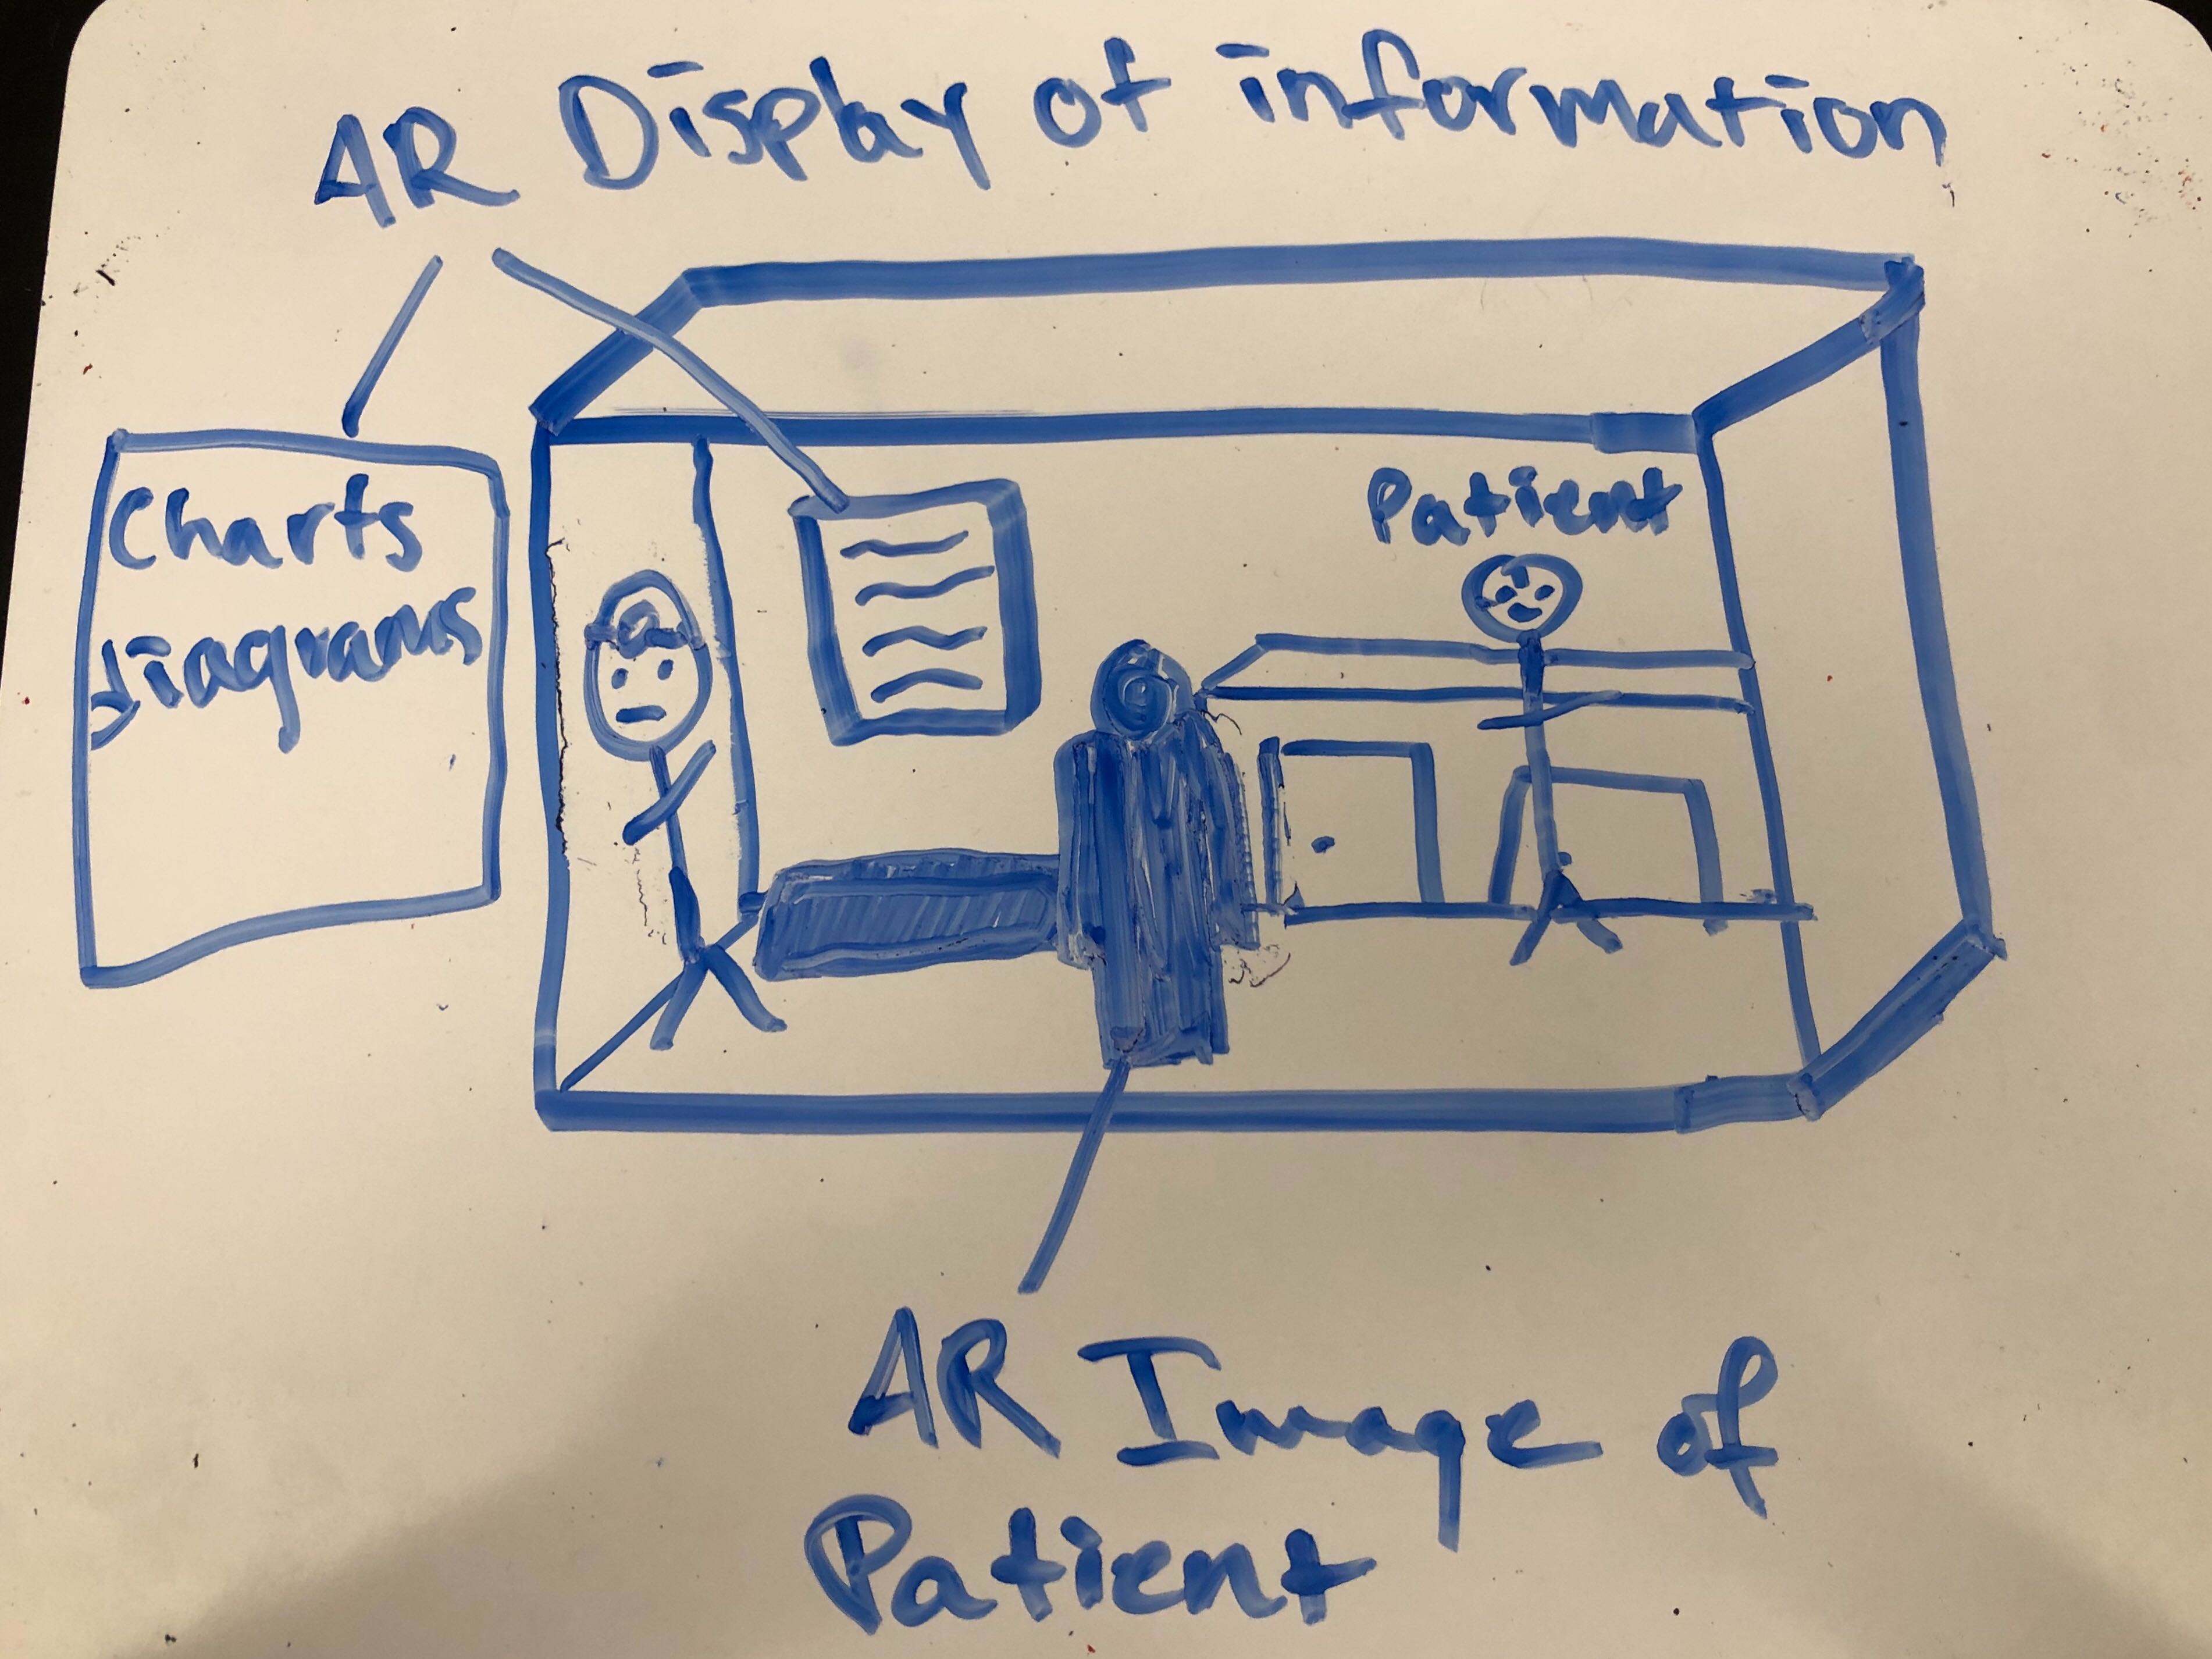 AR Display of information
Charts
diagrams
Patient
AR Image of
Patient